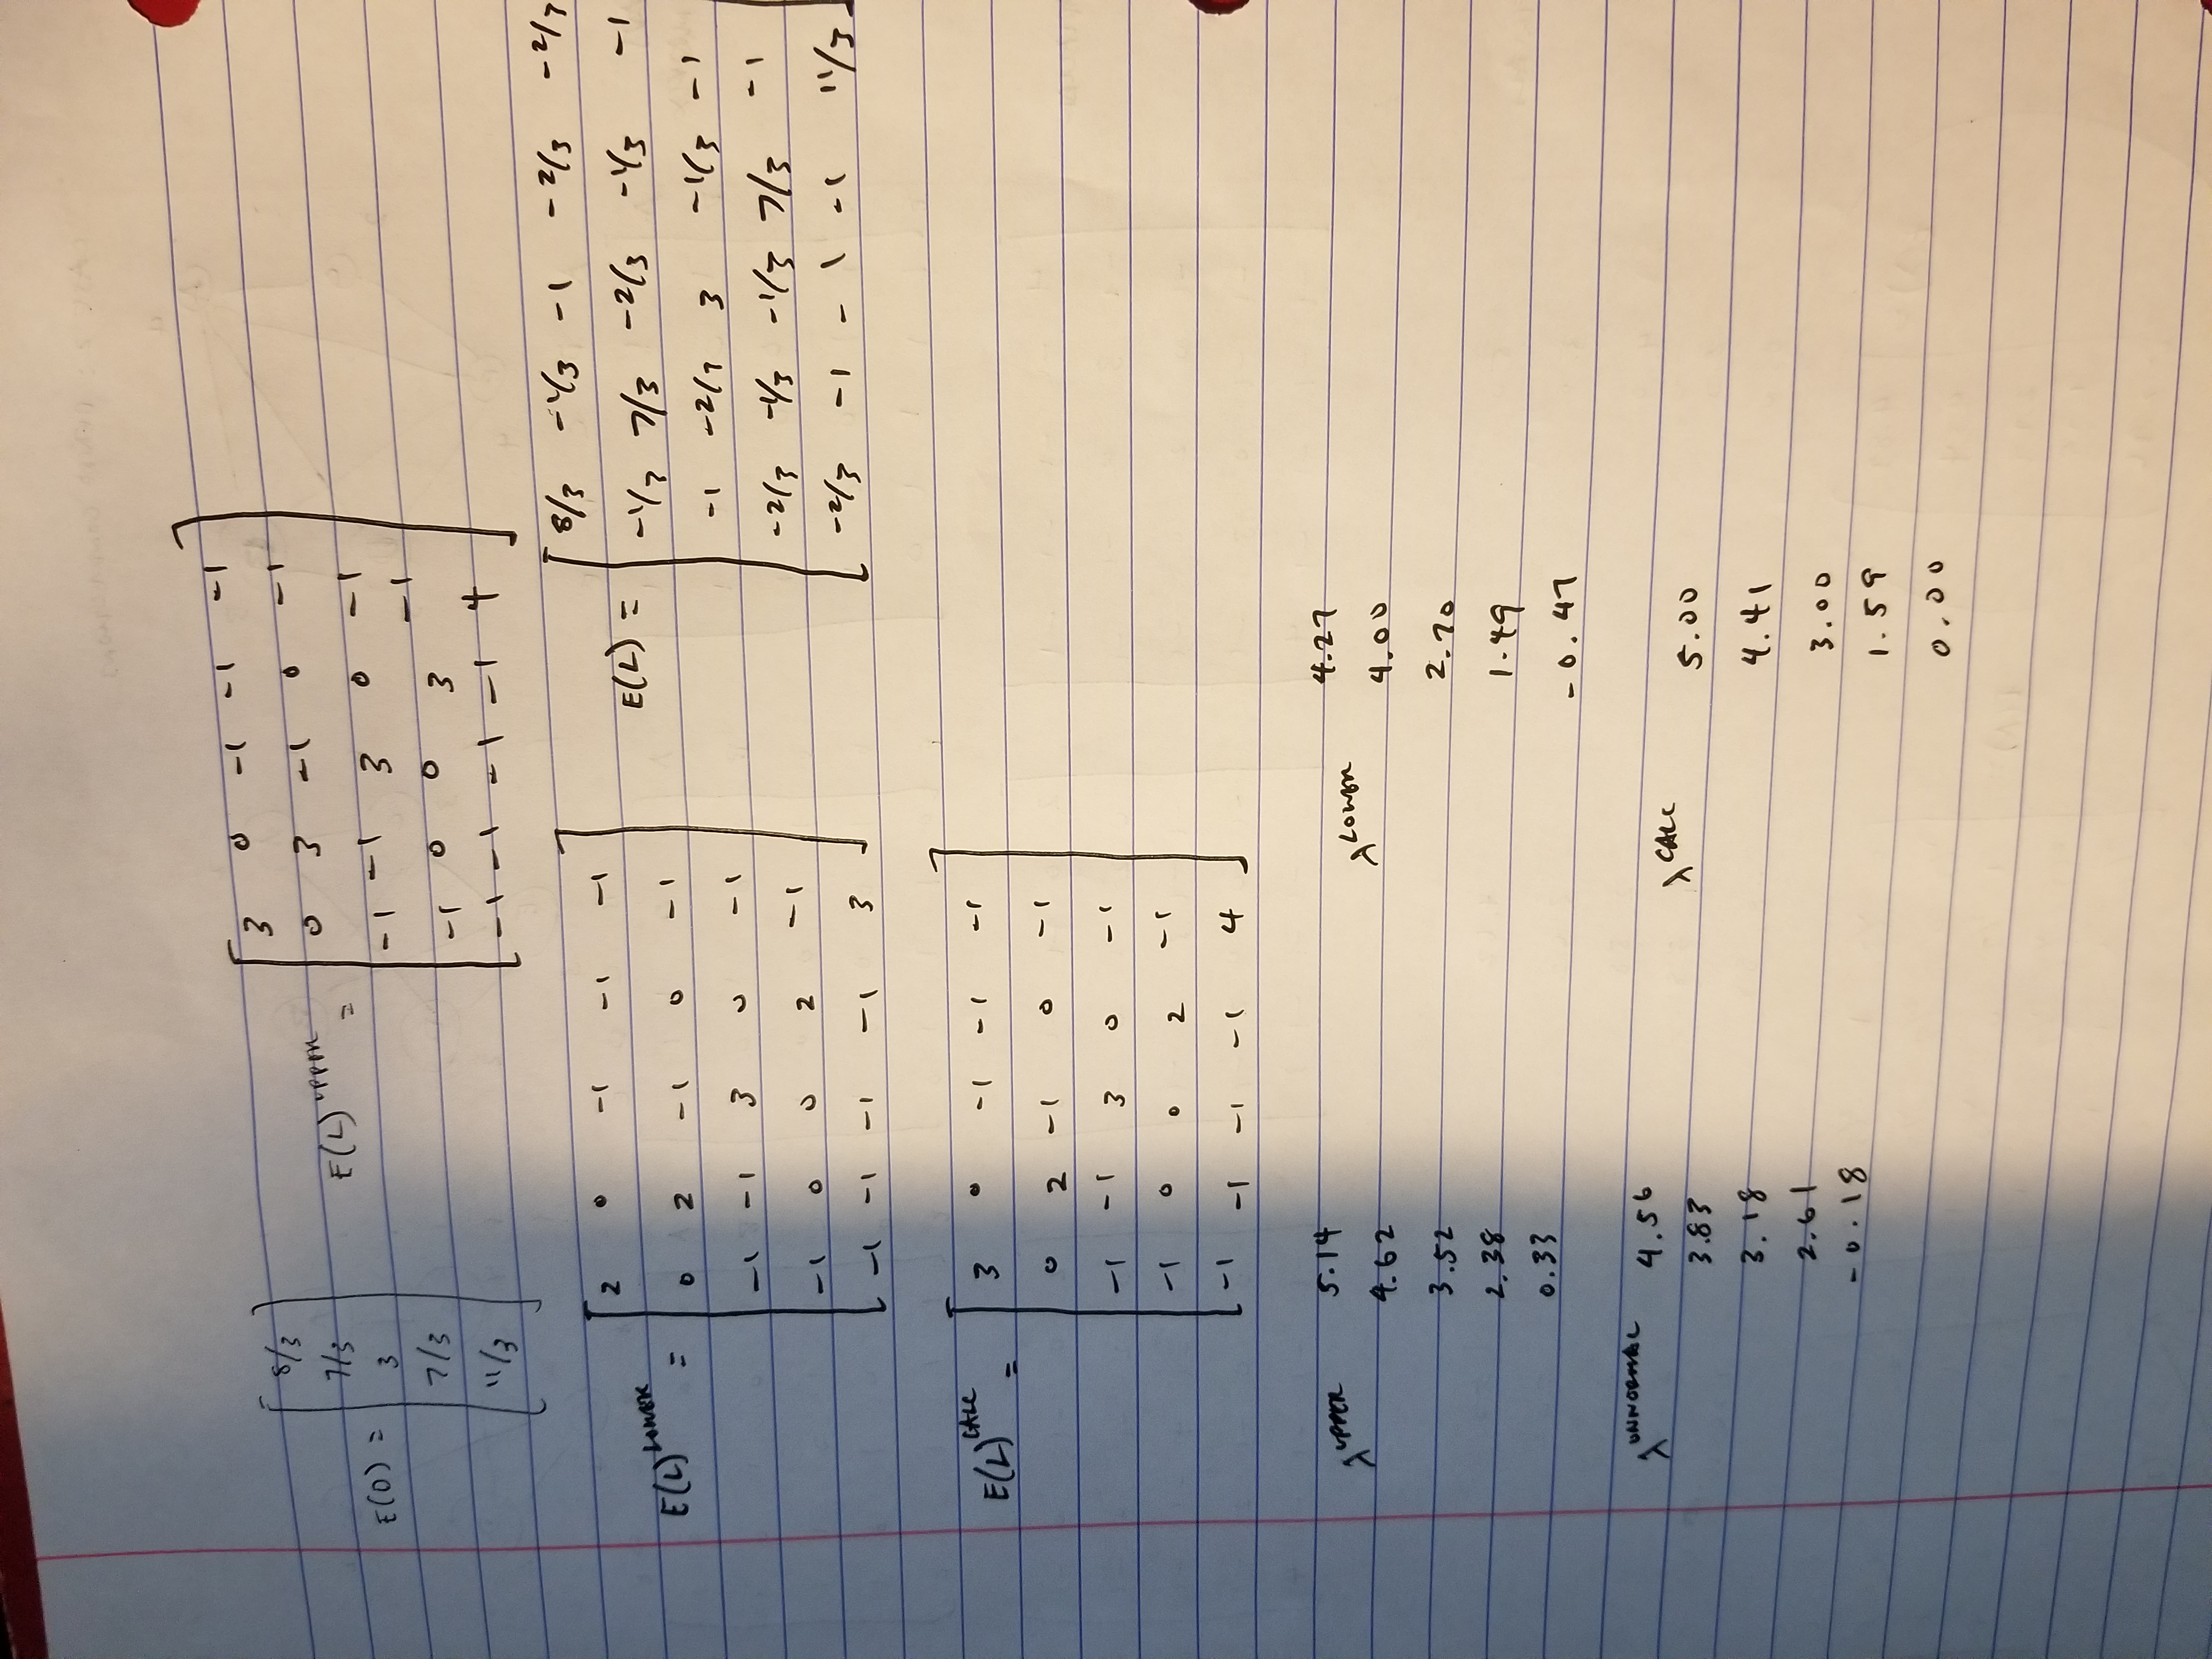 E(D) = [ 8/3 7/3 3 7/3 11/3 ]
E(L)^UPPER =
3 0 -1 -1 -1
0 3 -1 0 -1
-1 -1 3 0 -1
-1 0 0 3 -1
-1 -1 -1 -1 4
E(L)^LOWER =
2 0 -1 -1 -1
0 2 -1 0 -1
-1 -1 3 0 -1
-1 0 0 2 -1
-1 -1 -1 -1 3
E(L) =
8/3 -1/3 -1 -2/3 -2/3
-1/3 7/3 -2/3 -1/3 -1
-1 -2/3 3 -1/3 -1
-2/3 -1/3 -1/3 7/3 -1
-2/3 -1 -1 -1 11/3
E(L)^CALC =
3 0 -1 -1 -1
0 2 -1 0 -1
-1 -1 3 0 -1
-1 0 0 2 -1
-1 -1 -1 -1 4
λ^UPPER
5.14
4.62
3.52
2.38
0.33
λ^LOWER
4.27
4.00
2.70
1.49
-0.47
λ^UNNORMAL
4.56
3.83
3.18
2.61
-0.18
λ^CALC
5.00
4.41
3.00
1.59
0.00